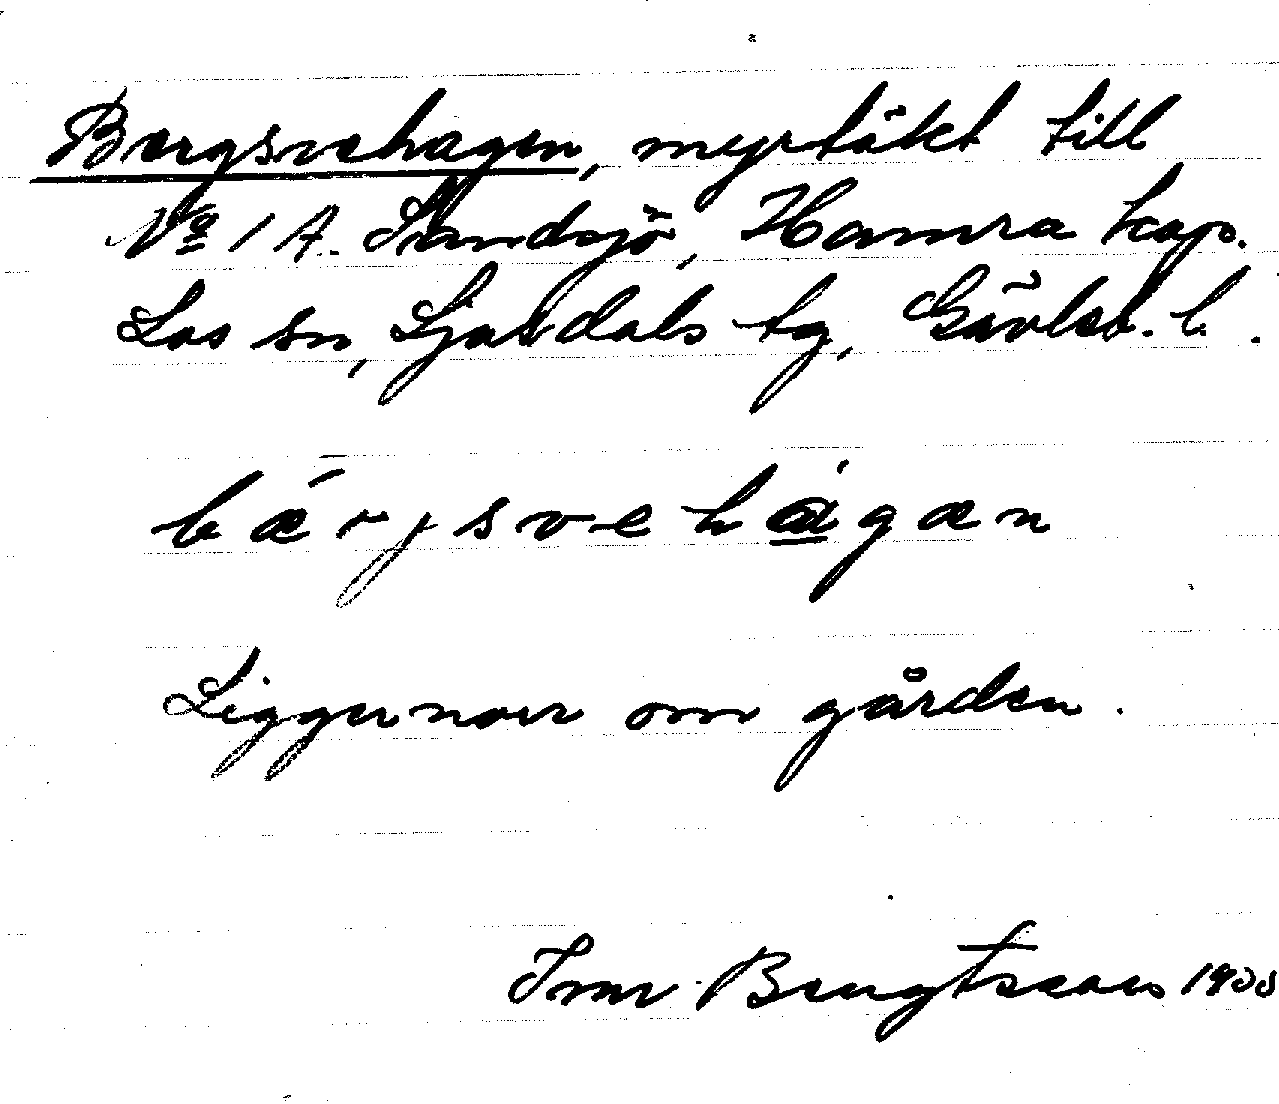 Bergsvehagen, myrtäkt till
No 1 A. Sandsjö, Hamra kap.
Los sn, Ljusdals tg, Gävleb. l.
bærjsvehagæn
Ligger norr om gården.
Ivar Bengtsson 1935